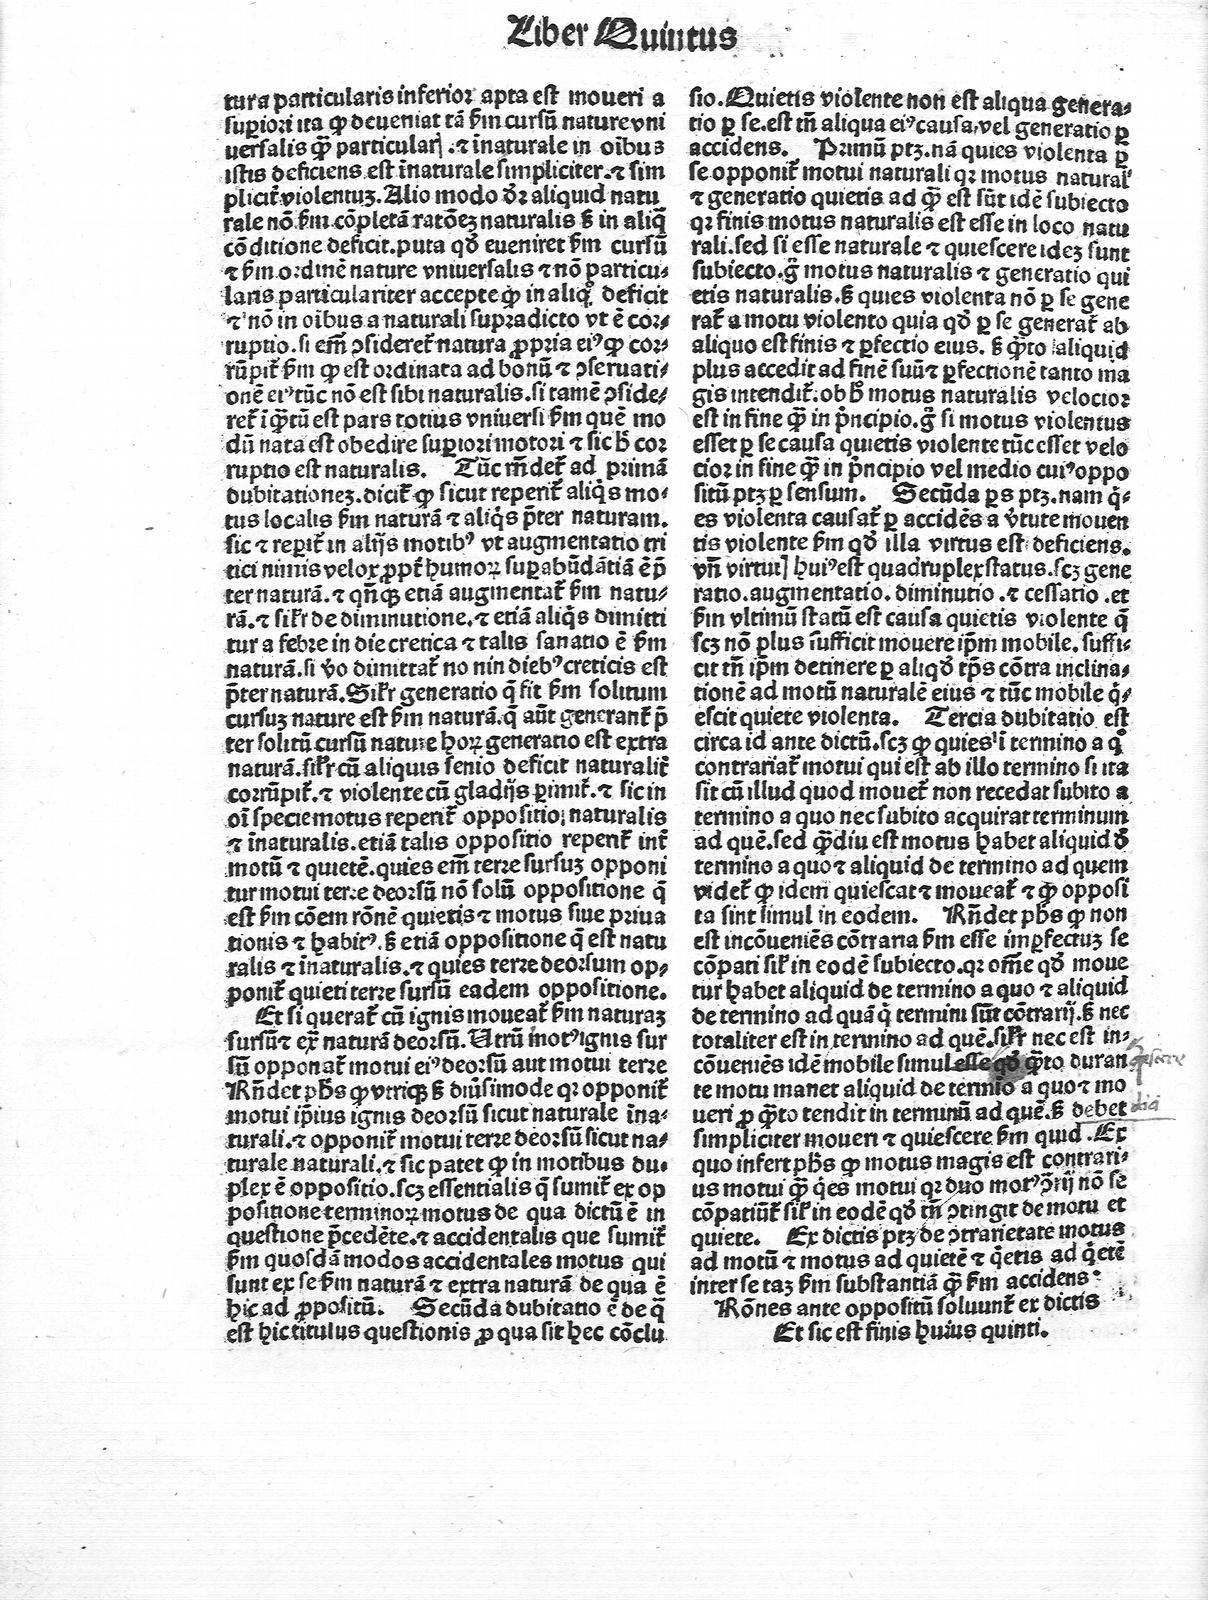 Liber Quintus
tura particularis inferior apta est moueri a
supiori ita ꝙ deueniat tã ẜm cursũ nature vni
uersalis q̃ꝫ particularꝭ .⁊ ĩnaturale in oĩbus
istis deficiens est ĩnaturale simpliciter.⁊ sim
plicit̃ violentuꝫ. Alio modo dr̃ aliquid natu
rale nõ ẜm cõpletã ratõeꝫ naturalis ẜ in aliq̃
cõditione deficit.puta qď eueniret ẜm cursũ
⁊ ẜm ordinẽ nature vniuersalis ⁊ nõ particu⸗
laris particulariter accepte ꝙ in aliq̊ deficit
⁊ nõ in oĩbus a naturali supradicto vt ẽ cor⸗
ruptio.si em̃ ꝯsideret̃ natura ꝓpria eiꝰ ꝙ cor⸗
rũpit̃ ẜm ꝙ est ordinata ad bonũ ⁊ ꝯseruati⸗
onẽ eiꝰ tũc nõ est sibi naturalis.si tamẽ ꝯside⸗
ret̃ ĩq̃tũ est pars totius vniuersi ẜm quẽ mo
dũ nata est obedire supiori motori ⁊ sic h̃ cor
ruptio est naturalis. Tũc rñdet̃ ad primã
dubitationeꝫ.dicit̃ ꝙ sicut reperit̃ aliq̃s mo⸗
tus localis ẜm naturã ⁊ aliq̃s p̃ter naturam.
sic ⁊ reꝑit̃ in alijs motibꝰ vt augmentatio tri
tici nimis velox ꝓpt̃ humoꝝ supabũdãtiã ẽ p̃
ter naturã.⁊ qñqꝫ etiã augmentat̃ ẜm natu⸗
rã.⁊ sil̃r de diminutione.⁊ etiã aliq̃s dimitti
tur a febre in die cretica ⁊ talis sanatio ẽ ẜm
naturã.si v̊o dimittat̃ no nin diebꝰ creticis est
p̃ter naturã. Sil̃r generatio q̃ fit ẜm solitum
cursuꝫ nature est ẜm naturã.q̃ aũt generant̃ p̃
ter solitũ cursũ nature hoꝝ generatio est extra
naturã.sil̃r cũ aliquis senio deficit naturalit̃
corrũpit̃.⁊ violente cũ gladijs ꝑimit̃.⁊ sic in
oĩ specie motus reperit̃ oppositio naturalis
⁊ ĩnaturalis.etiã talis oppositio reperit̃ int̃
motũ ⁊ quietẽ.quies em̃ terre sursuꝫ opponi
tur motui terre deorsũ nõ solũ oppositione q̃
est ẜm cõem rõnẽ quietis ⁊ motus siue priua
tionis ⁊ habitꝰ.ẜ etiã oppositione q̃ est natu
ralis ⁊ ĩnaturalis.⁊ quies terre deorsum op⸗
ponit̃ quieti terre sursũ eadem oppositione.
Et si querat̃ cũ ignis moueat̃ ẜm naturaꝫ
sursũ ⁊ ex̃ naturã deorsũ. Utrũ motꝰ ignis sur
sũ opponat̃ motui eiꝰ deorsũ aut motui terre
Rñdet ph̃s ꝙ vtriqꝫ ẜ diũsimode qꝛ opponit̃
motui ip̃ius ignis deorsũ sicut naturale ĩna⸗
turali.⁊ opponit̃ motui terre deorsũ sicut na⸗
turale naturali.⁊ sic patet ꝙ in motibus du⸗
plex ẽ oppositio.scꝫ essentialis q̃ sumit̃ ex op
positione terminoꝝ motus de qua dictũ ẽ in
questione p̃cedẽte.⁊ accidentalis que sumit̃
ẜm quosdã modos accidentales motus qui
sunt ex se ẜm naturã ⁊ extra naturã de qua ẽ
hic ad ꝓpositũ. Secũda dubitatio ẽ de q̃
est hic titulus questionis ꝓ qua sit hec cõclu
sio. Quietis violente non est aliqua genera⸗
tio ꝑ se.est tñ aliqua eiꝰ causa,vel generatio ꝑ
accidens. Primũ ptꝫ.nã quies violenta ꝑ
se opponit̃ motui naturali qꝛ motus natural̃
⁊ generatio quietis ad q̃ꝫ est sũt idẽ subiecto
qꝛ finis motus naturalis est esse in loco natu
rali.sed si esse naturale ⁊ quiescere ideꝫ sunt
subiecto.g̊ motus naturalis ⁊ generatio qui
etis naturalis.ẜ quies violenta nõ ꝑ se gene
rat̃ a motu violento quia qď ꝑ se generat̃ ab
aliquo est finis ⁊ ꝑfectio eius. ẜ q̃to aliquid
plus accedit ad finẽ suũ ⁊ ꝑfectionẽ tanto ma
gis intendit̃.ob h̃ motus naturalis velocior
est in fine q̃ꝫ in p̃ncipio.g̊ si motus violentus
esset ꝑ se causa quietis violente tũc esset velo
cior in fine q̃ꝫ in p̃ncipio vel medio cuiꝰ oppo
situ ptꝫ ꝑ sensum. Secũda ps ptꝫ.nam q̃⸗
es violenta causat̃ ꝑ accidẽs a v̓tute mouen
tis violente ẜm qď illa virtus est deficiens.
vñ virtutꝭ huiꝰ est quadruplex status.scꝫ gene
ratio.augmentatio. diminutio .⁊ cessatio .et
ẜm vltimũ statũ est causa quietis violente q̃
scꝫ nõ plus sufficit mouere ip̃m mobile. suffi⸗
cit tñ ip̃m detinere ꝑ aliqď tp̃s cõtra inclina⸗
tionẽ ad motũ naturalẽ eius ⁊ tũc mobile q̃⸗
escit quiete violenta. Tercia dubitatio est
circa id ante dictũ.scꝫ ꝙ quies ĩ termino a q̊
contrariat̃ motui qui est ab illo termino si ita
sit cũ illud quod mouet̃ non recedat subito a
termino a quo nec subito acquirat terminum
ad quẽ.sed q̃ꝫdiu est motus habet aliquid ď
termino a quo ⁊ aliquid de termino ad quem
videt̃ ꝙ idem quiescat ⁊ moueat̃ ⁊ ꝙ opposi
ta sint simul in eodem. Rñdet ph̃s ꝙ non
est incõueniẽs cõtraria ẜm esse imꝑfectuꝫ se
cõpati sil̃ in eodẽ subiecto.qꝛ om̃e qď moue
tur habet aliquid de termino a quo ⁊ aliquid
de termino ad quã q̃ termini sũt cõtrarij.ẜ nec
totaliter est in termino ad quẽ.sil̃r nec est in⸗
cõueniẽs idẽ mobile simul esse qď q̃to duran
te motu manet aliquid de termio a quo ⁊ mo
ueri ꝓ q̃to tendit in terminũ ad quẽ.ẜ debet dici
simpliciter moueri ⁊ quiescere ẜm quid .Ex
quo infert ph̃s ꝙ motus magis est contrari⸗
us motui q̃ꝫ q̃es motui qꝛ duo motꝰ ꝯ̃rij nõ se
cõpatiũt̃ sil̃ in eodẽ qď tñ ꝯtingit de motu et
quiete. Ex dictis ptꝫ de ꝯtrarietate motus
ad motũ ⁊ motus ad quietẽ ⁊ q̃etis ad q̃etẽ
inter se taꝫ ẜm substantiã q̃ꝫ ẜm accidens
Rõnes ante oppositũ soluunt̃ ex dictis
Et sic est finis huius quinti.